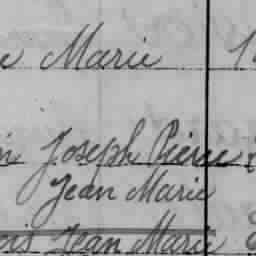 Marie
Joseph Pierre
Jean Marie
Jean Marie